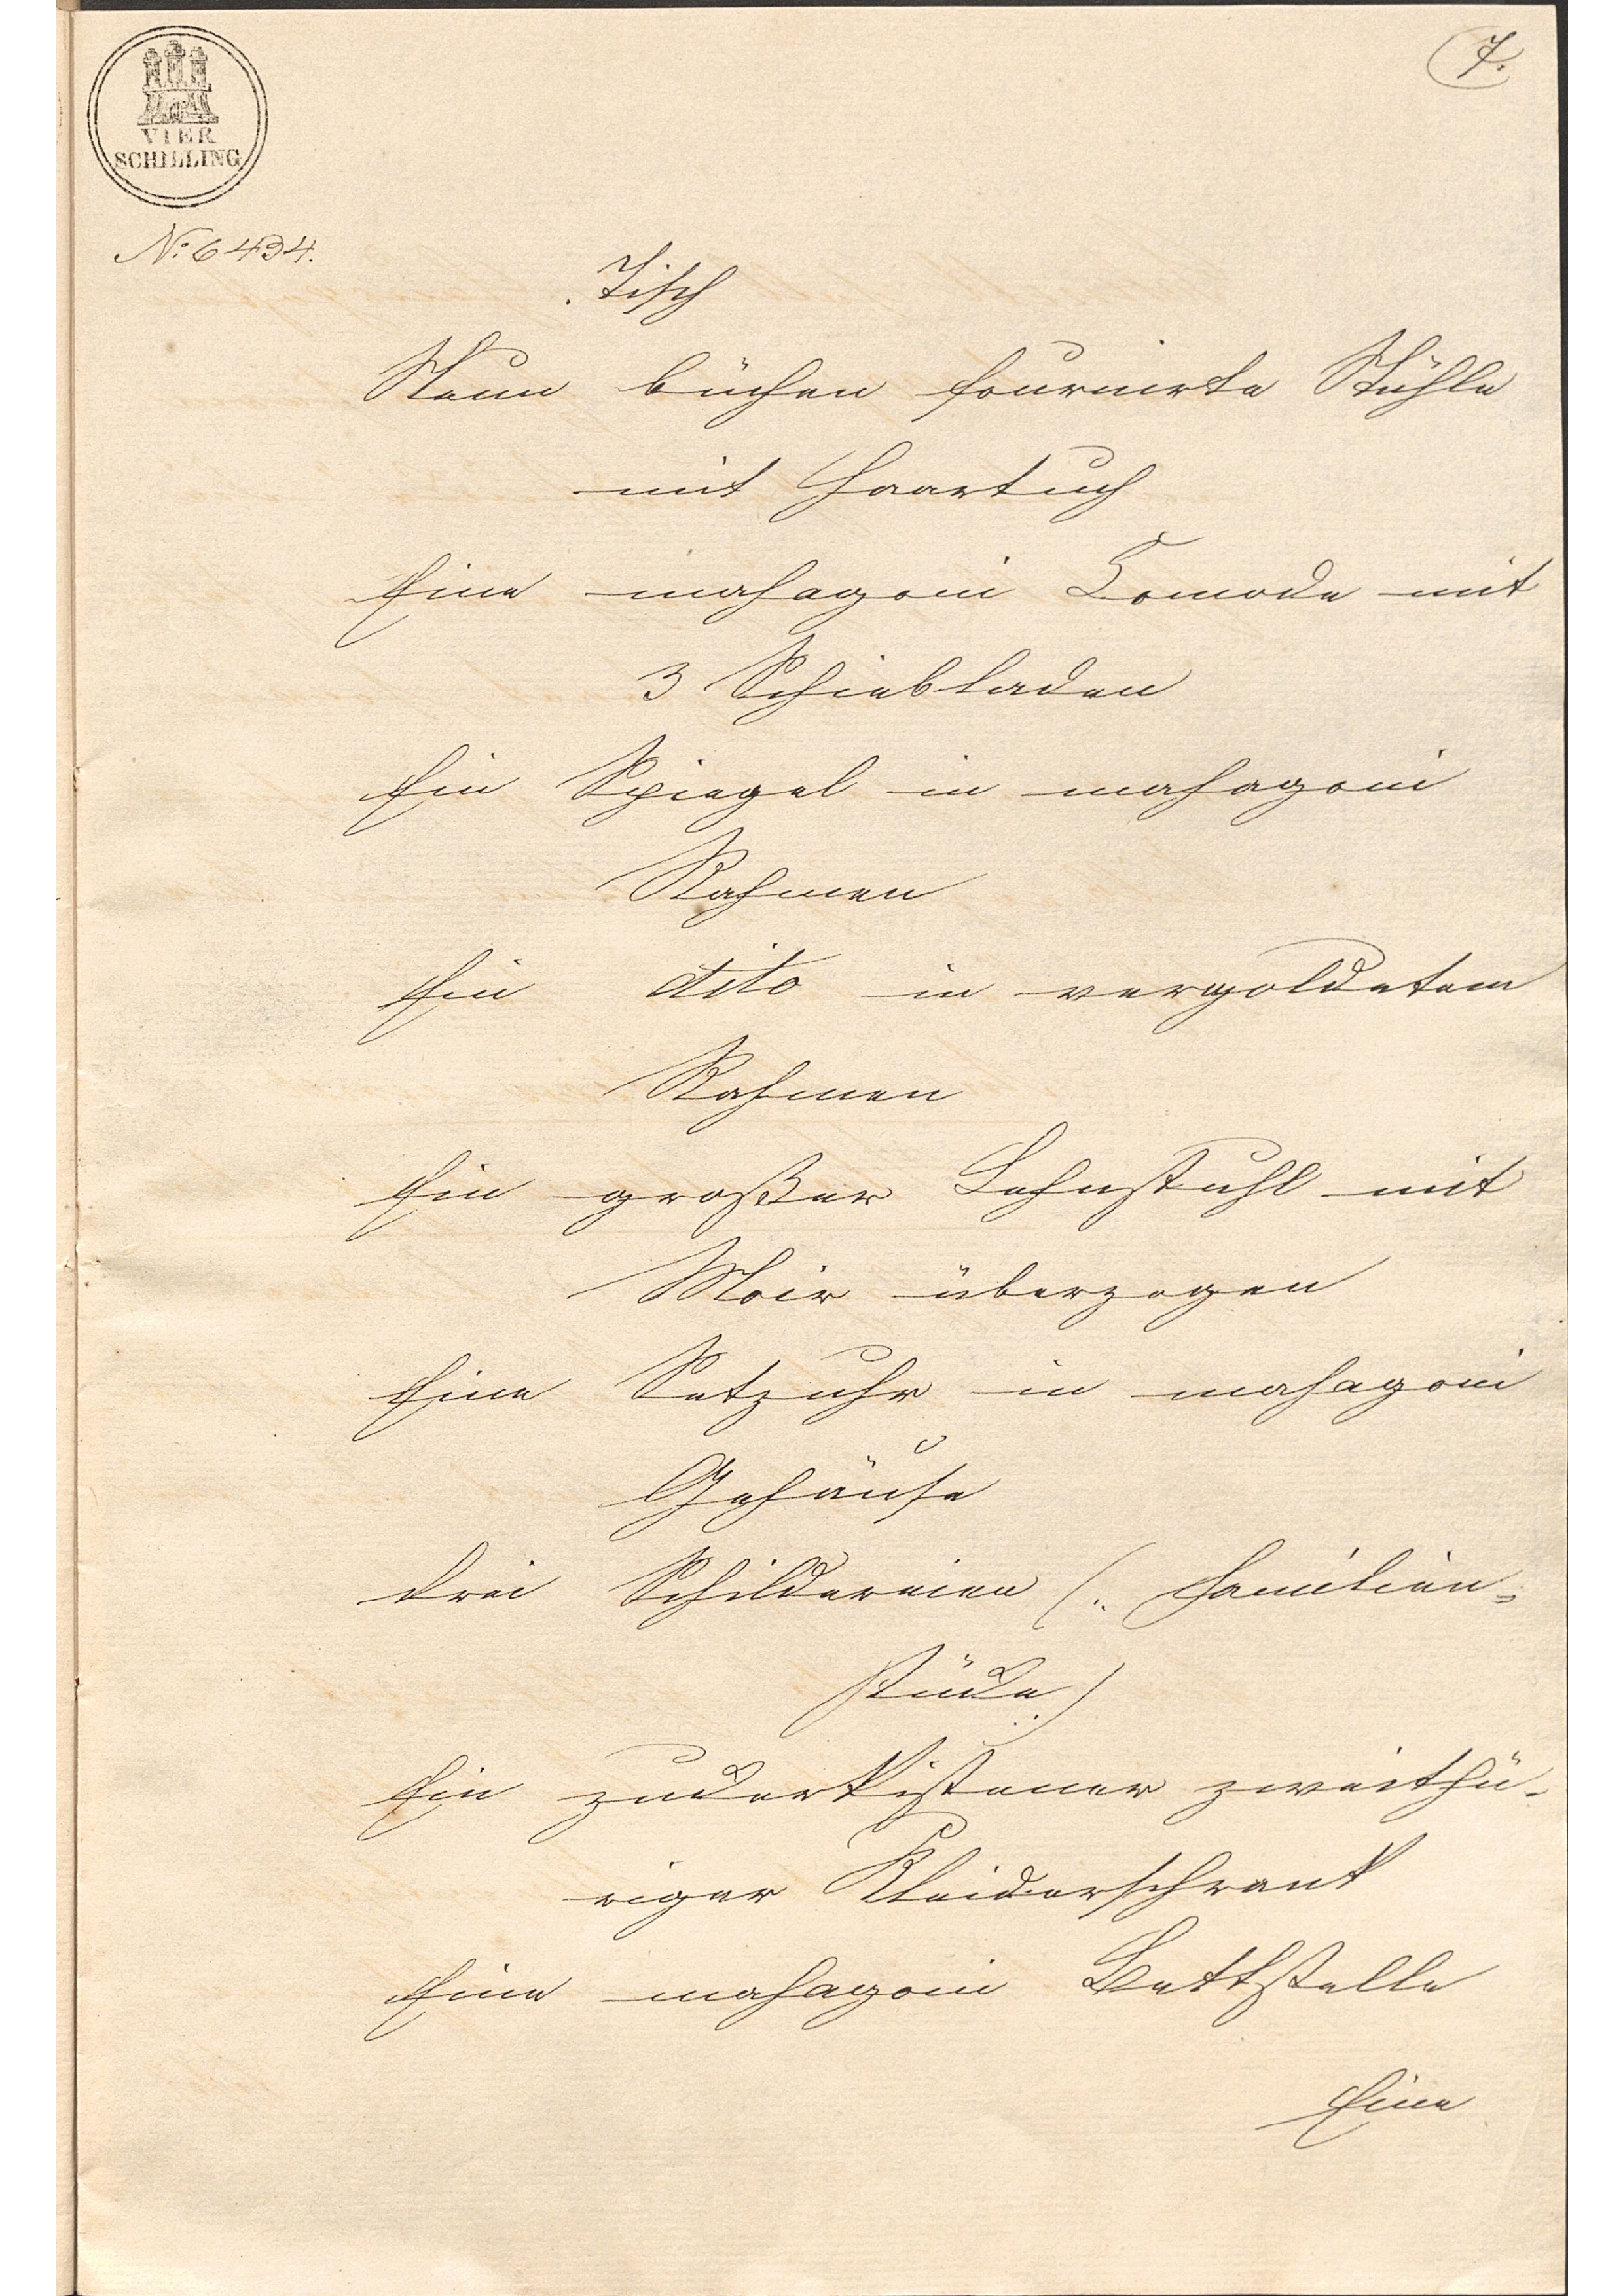 7.
VIER
SCHILLING
No: 6434.
Tisch
Neun büchen fournirte Stühle
mit Haartuch
Eine mahagoni Comode mit
3 Schiebladen
Ein Spiegel in mahagoni
Rahmen
Ein dito in vergoldetem
Rahmen
Ein großer Lehnstuhl mit
Moir überzogen
Eine Setzuhr in mahagoni
Gehäuse
drei Schildereien (: Familien=
stücke :)
Ein zuckerkistener zweithü-
riger Kleiderschrank
Eine mahagoni Bettstelle
Eine